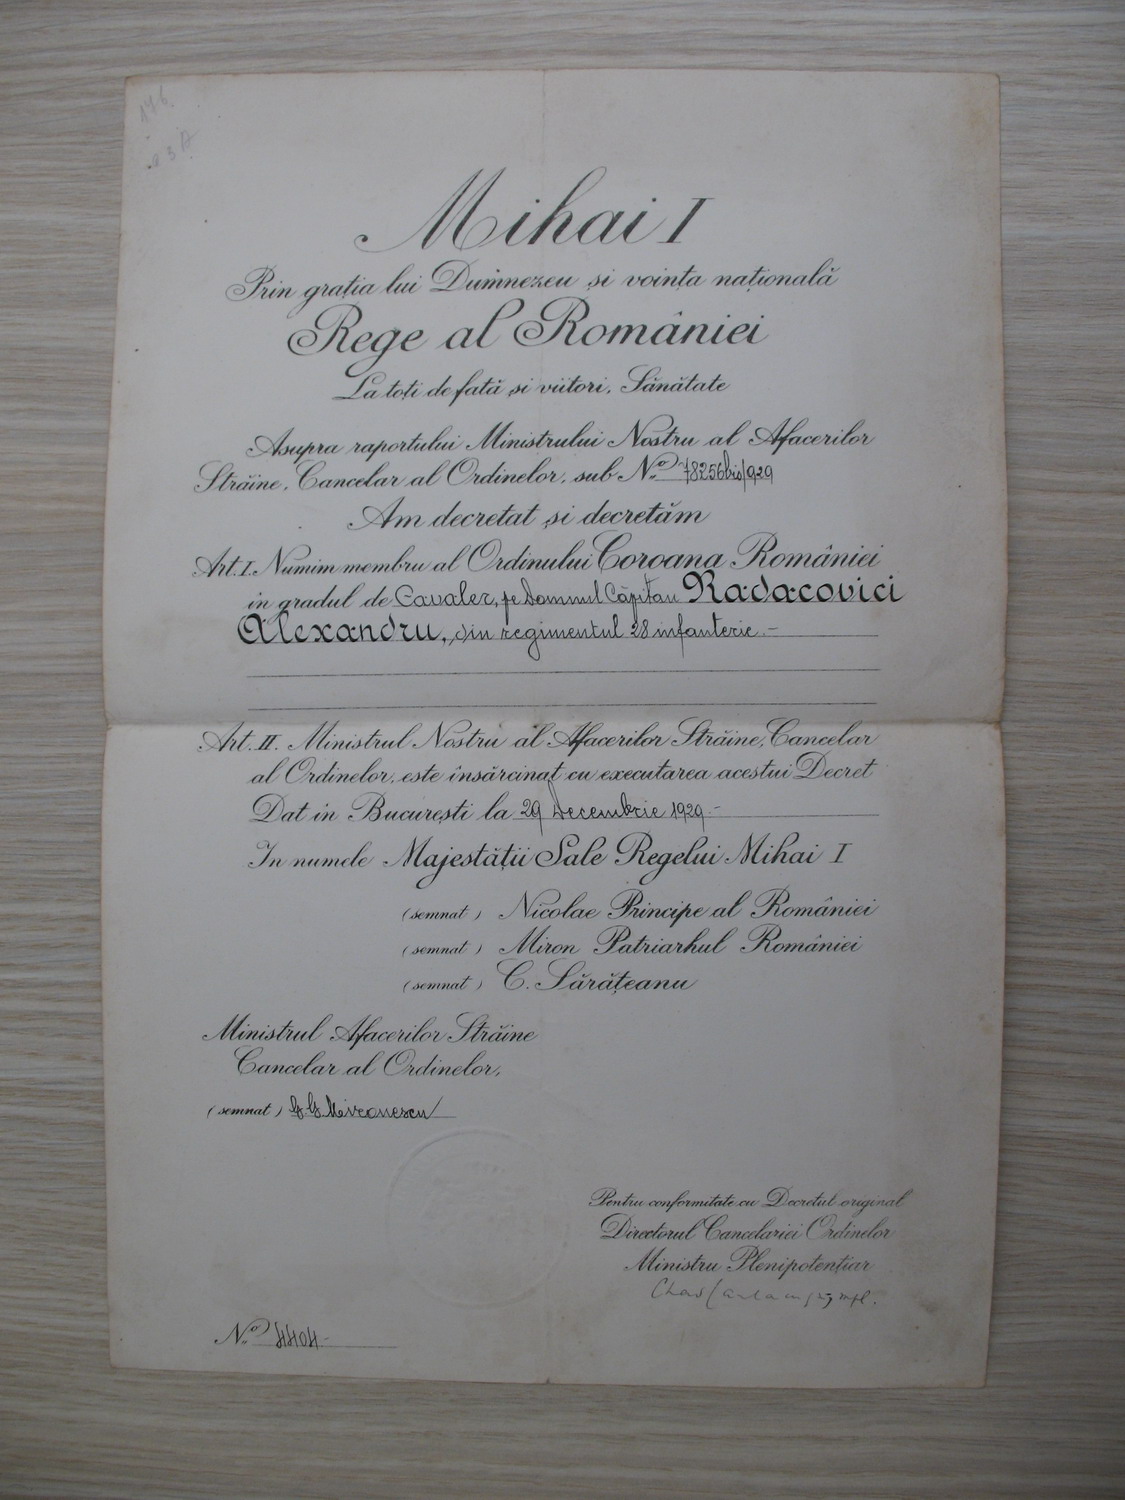 Mihai I
Prin grația lui Dumnezeu și voința națională
Rege al României
La toți de față și viitori, Sănătate
Asupra raportului Ministrului Nostru al Afacerilor
Străine, Cancelar al Ordinelor, sub No. 78256bis/929
Am decretat și decretăm
Art. I. Numim membru al Ordinului Coroana României
în gradul de Cavaler, pe Domnul Căpitan Radacovici
Alexandru, din regimentul 28 infanterie.-
Art. II. Ministrul Nostru al Afacerilor Străine, Cancelar
al Ordinelor, este însărcinat cu executarea acestui Decret
Dat în București la 29 Decembrie 1929.-
In numele Majestății Sale Regelui Mihai I
(semnat) Nicolae Principe al României
(semnat) Miron Patriarhul României
(semnat) C. Sărățeanu
Ministrul Afacerilor Străine
Cancelar al Ordinelor,
(semnat) G. G. Mironescu
Pentru conformitate cu Decretul original
Directorul Cancelariei Ordinelor
Ministru Plenipotențiar
No. 4404.-